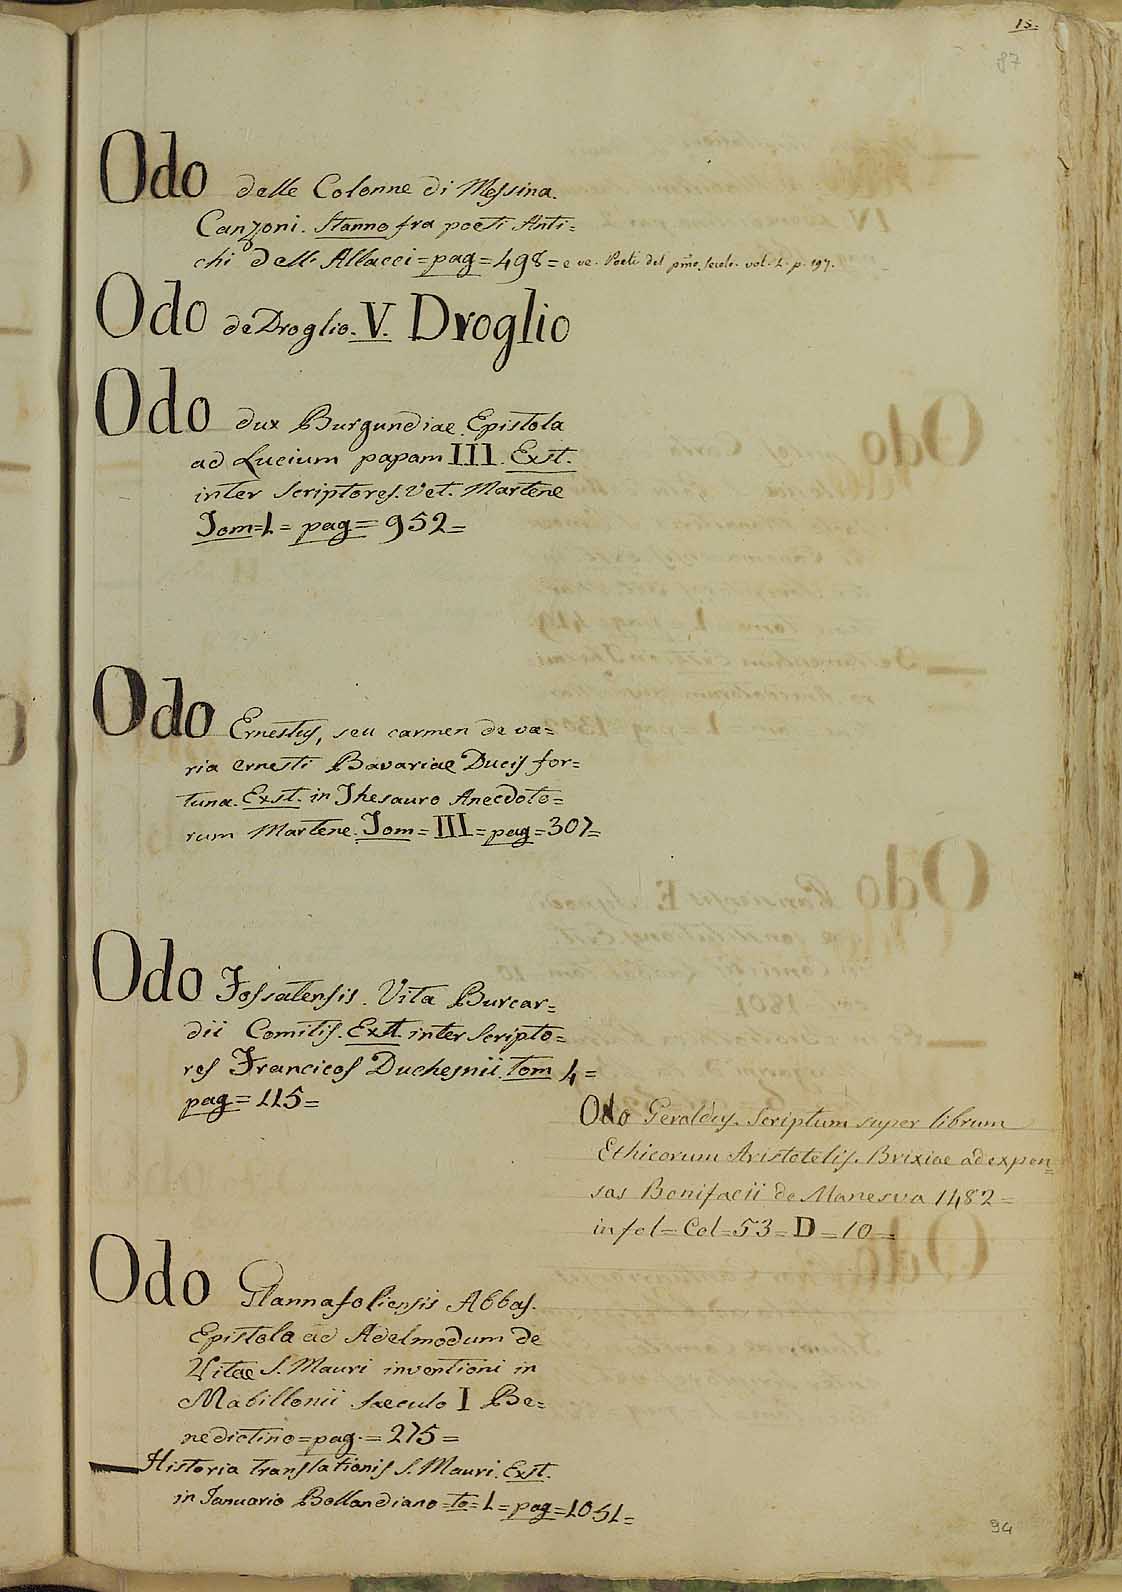 15.
87
Odo delle Colonne di Messina.
Canzoni. Stanno fra poeti Anti=
chi dell. Allacci = pag = 498 = e ve. Poeti del pmo. secolo. vol. 1. p. 197.
Odo de Droglio. V. Droglio
Odo dux Burgundiae Epistola
ad Lucium papam III. Exst.
inter scriptores. Vet. Martene
Tom = 1 = pag = 952 =
Odo Ernestus, seu carmen de va=
ria ernesti Bavariae Ducis for=
tuna. Exst. in Thesauro Anecdoto=
rum Martene. Tom = III = pag = 307 =
Odo Fossatensis. Vita Burcar=
dii Comitis. Exst. inter scripto=
res Francicos Duchesnii. tom 4 =
pag = 115 =
Odo Geraldus. Scriptum super librum
Ethicorum Aristotelis. Brixiae ad expen=
sas Bonifacii de Manerva 1482 =
in fol = Col = 53 = D = 10 =
Odo Glannafoliensis Abbas.
Epistola ad Adelmodum de
Vitae S. Mauri inventioni in
Mabillonii saeculo I Be=
nedictino = pag. = 275 =
Historia translationis S. Mauri. Exst.
in Januario Bollandiano = to = 1 = pag = 1051 =
94